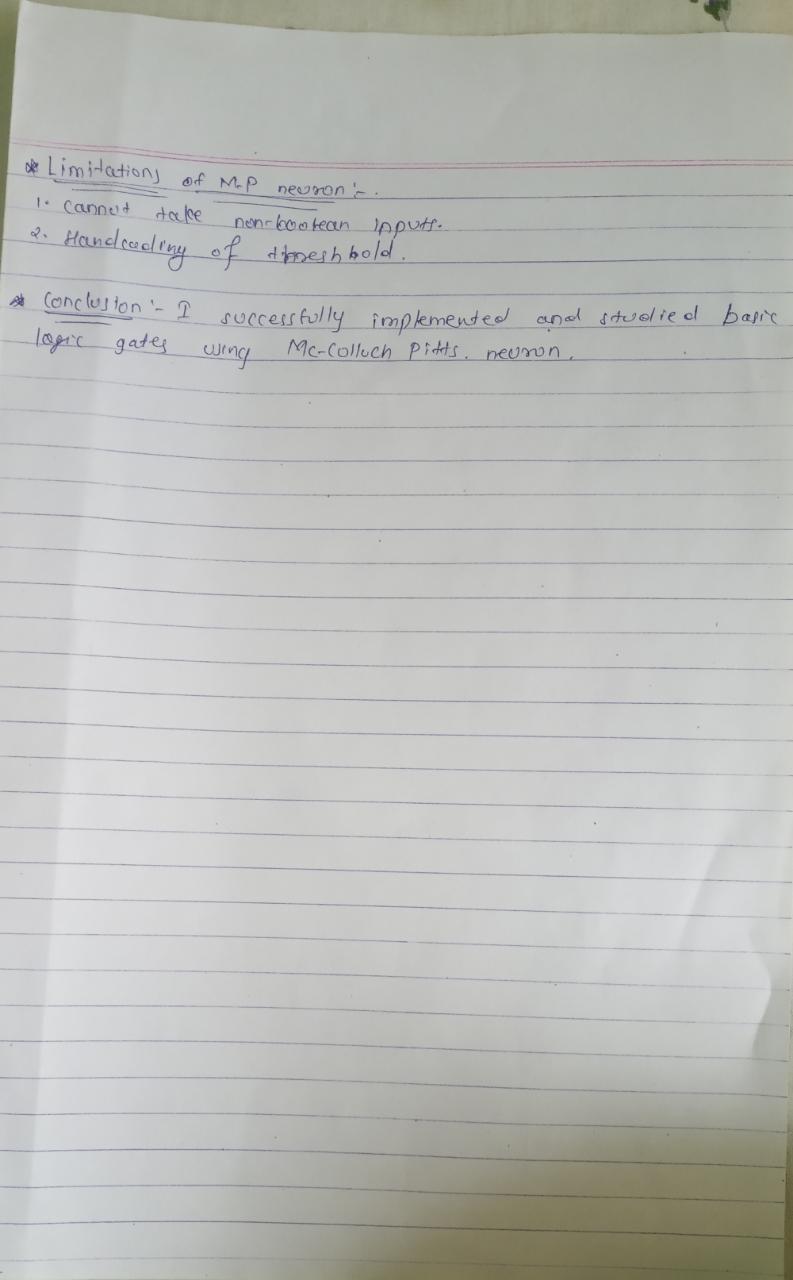 * Limitations of M.P neuron :-.
1. Cannot take non-boolean inputs.
2. Handcoding of threshhold.
* Conclusion :- I successfully implemented and studied basic
logic gates using Mc-Colloch Pitts. neuron.